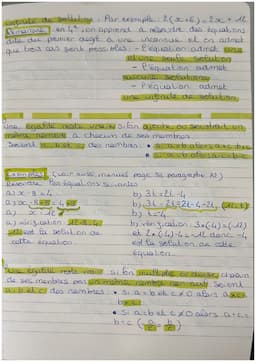 infinité de solutions. Par exemple: 2(x+6) = 2x + 12
Remarque: en 4e on apprend à résoudre des équations
dite du premier degré à une inconnue et on admet
que trois cas sont possibles: - l'équation admet une
et une seule solution
- l'équation admet
aucune solution
- l'équation admet
une infinité de solution.
Une égalité reste vraie si l'on ajoute ou soustrait un
même nombre à chacun de ses membres.
Soient a, b et c des nombres: • si a=b alors a+c = b+c
• si a=b alors a-c = b-c
Exemples (voir aussi manuel page 86 paragraphe A2)
Résoudre les équations suivantes
a) x - 8 = 4 b) 3t = 2t - 4
a) x - 8 + 8 = 4 + 8 b) 3t - 2t = 2t - 4 - 2t
a) x = 12 b) t = -4
a) vérification: 12 - 8 = 4 b) vérification: 3×(-4) = (-12)
12 est la solution de et 2×(-4) - 4 = -12 donc -4
cette équation. est la solution de cette
équation.
Une égalité reste vraie si l'on multiplie ou divise chacun
de ses membres par un même nombre non nul. Soient
a, b et c des nombres. • si a=b et c≠0 alors a×c =
b×c
• si a=b et c≠0 alors a÷c =
b÷c (a/c = b/c)